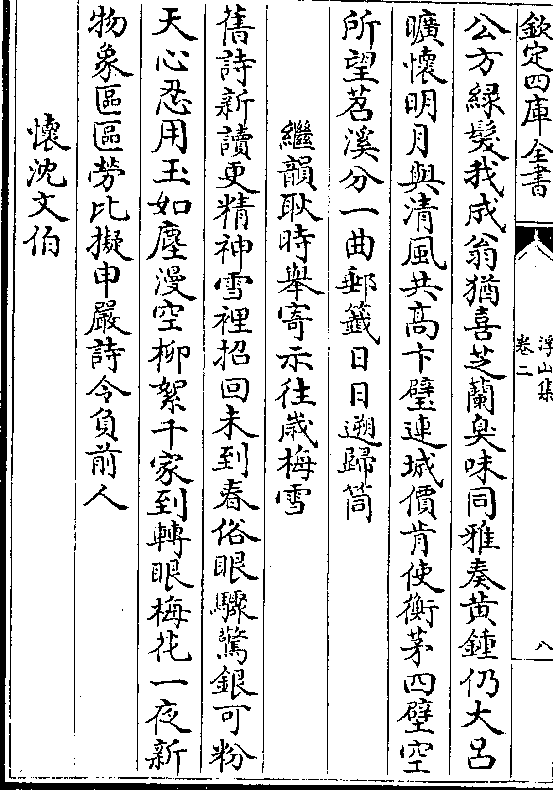 欽定四庫全書
浮山集
卷二
八
公方緑髮我成翁猶喜芝蘭臭味同雅奏黄鍾仍大吕
曠懷明月與清風共髙卞璧連城價肯使衡茅四壁空
所望苕溪分一曲郵籖日日遡歸筒
繼韻耿時舉寄示往歲梅雪
舊詩新讀更精神雪裡招回未到春俗眼驟驚銀可粉
天心忍用玉如塵漫空柳絮千家到轉眼梅花一夜新
物象區區勞比擬申嚴詩令負前人
懷沈文伯